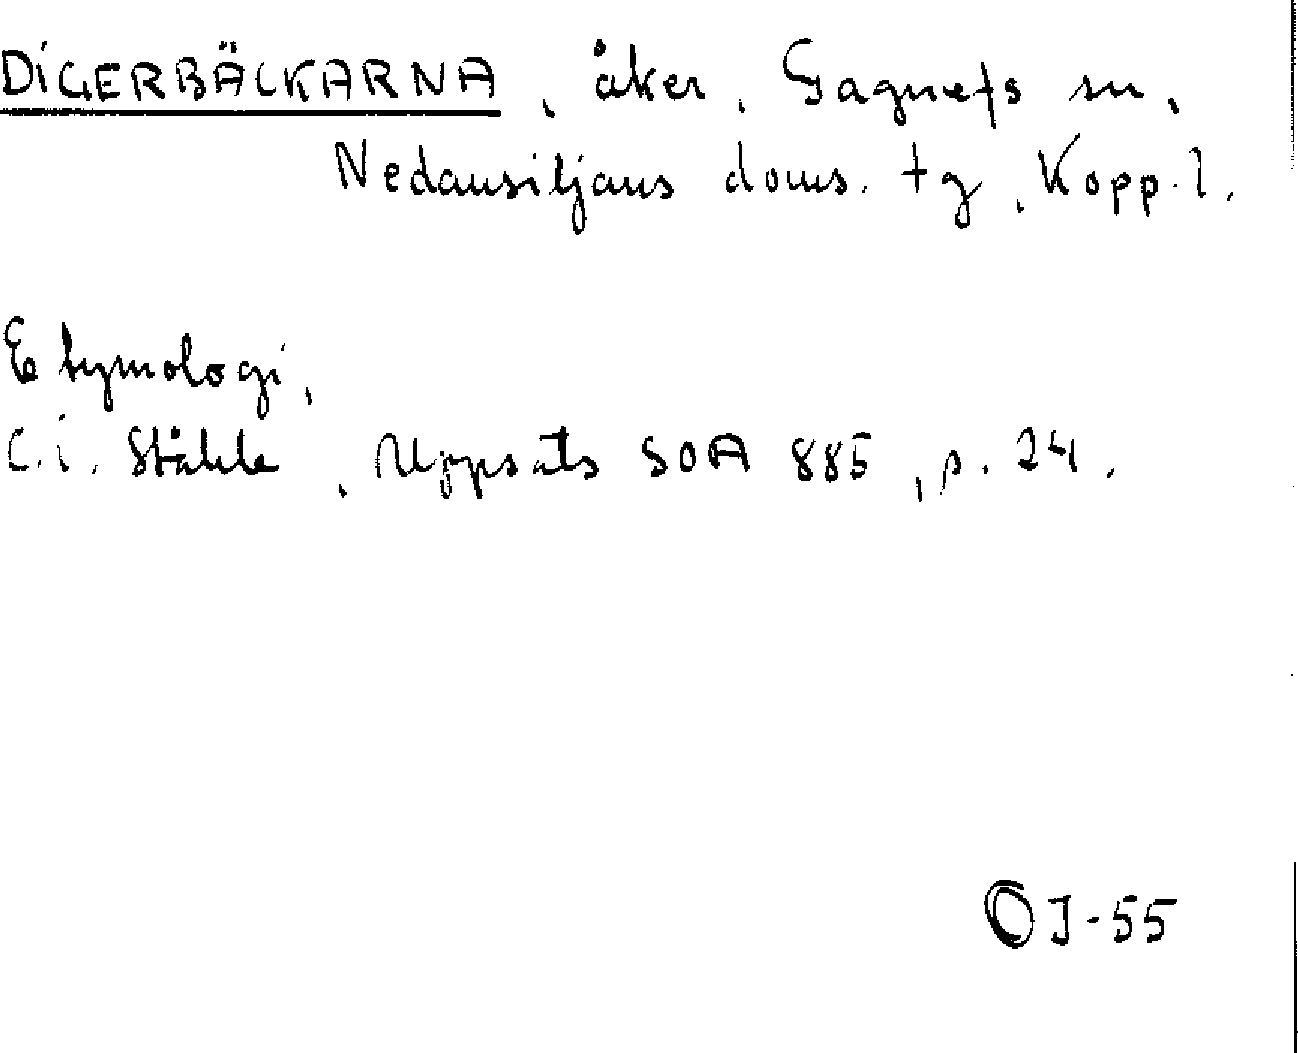 DIGERBÄCKARNA, åker, Gagnefs sn,
Nedansiljans doms. tg, Kopp. l.
Etymologi,
C.I. Ståhle, Uppsats SOA 885, s. 24.
OJ-55